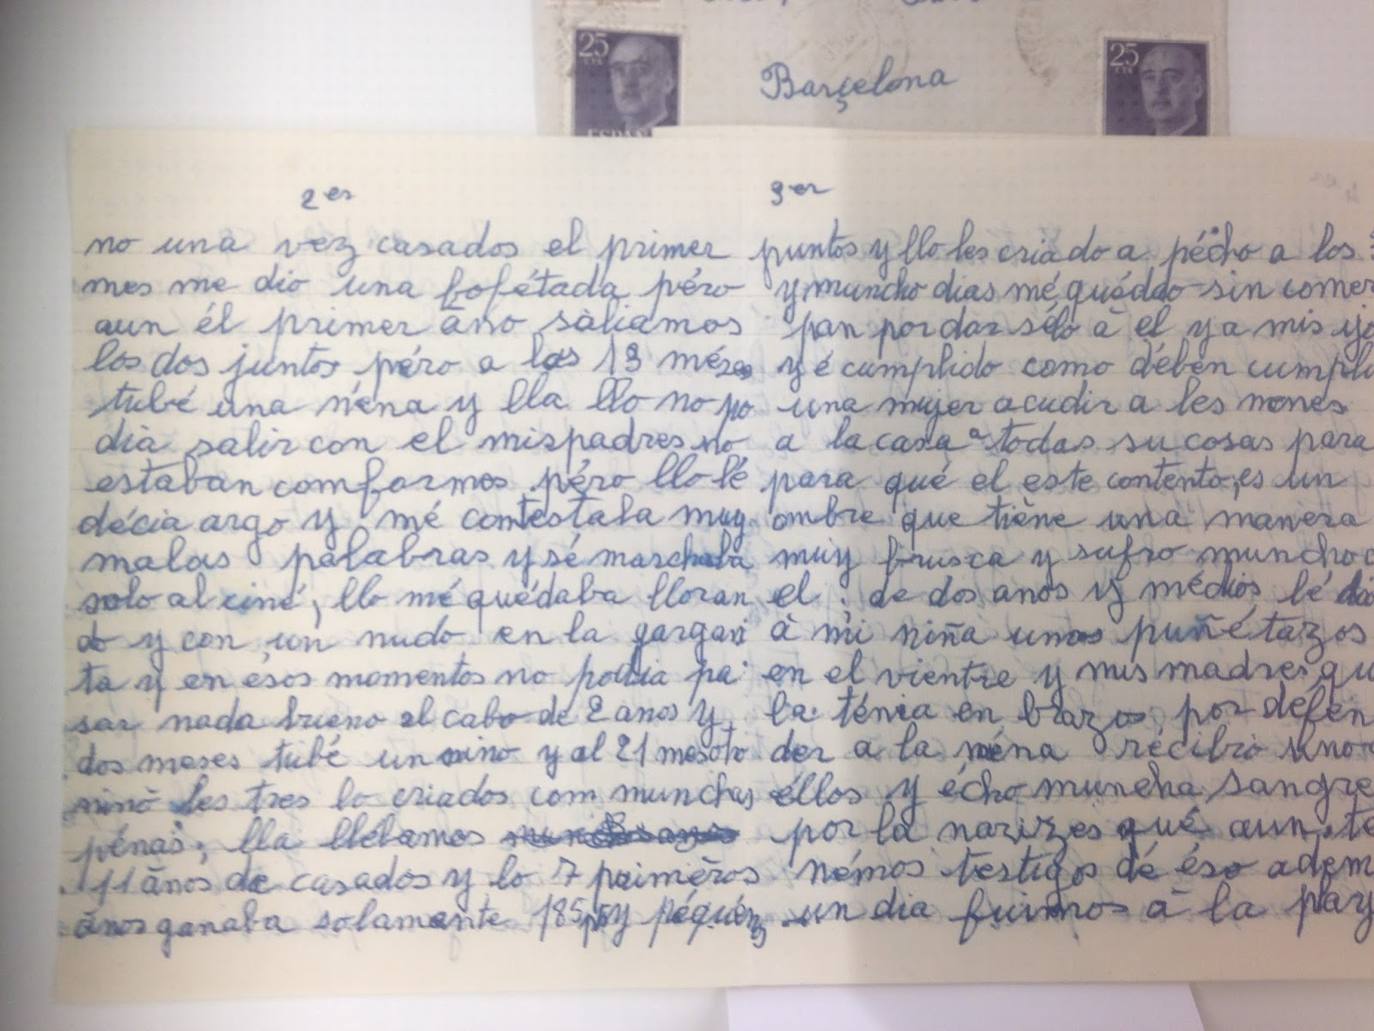 25
CTS
ESPAÑA
Barçelona
25
CTS
2 er
no una vez casados el primer
mes me dio una bofétada péro
aun él primer año saliamos
los dos juntos péro a los 13 méses
tubé una néna y lla llo no po
dia salir con el mis padres no
estaban comformes péro llo lé
décia argo y mé contestaba muy
malas palabras y sé marchaba
solo al ciné, llo mé quédaba lloran
do y con un nudo en la gargan
ta y en ésos momentos no podia pa
sar nada bueno al cabo de 2 anos y
dos meses tubé un nino y al 21 mes oto
nino les tres lo criados com munchas
pénas, lla llebamos
11 ános de casados y lo 7 primeros
ános ganaba solamente 185 y péquéno
3 er
puntos y llo les criado a pécho a los 3
y muncho dias mé quédao sin comer
pan por dar sélo à el y a mis yjo
y é cumplido como dében cumpli
una mujer acudir a les mones
a la casa a todas su cosas para
para qué el este contento, es un
ombre que tiène una manera
muy brusca y sufro muncho c
el. de dos anos y médios lé dio
à mi niña unos puñétazos
en el vientre y mis madres qu
la ténia en brazos por défén
der a la néna récibio uno
éllos y écho muncha sangre
por la narizes qué aun te
némos testigos dé éso adem
un dia fuimos à la play